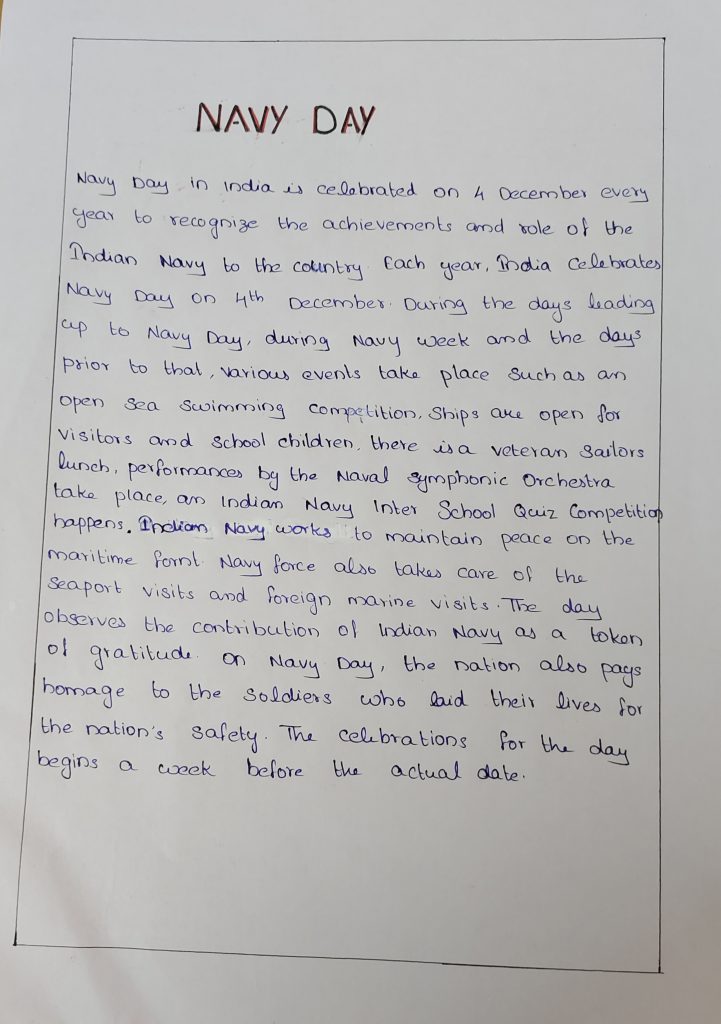 NAVY DAY
Navy Day in India is celebrated on 4 December every
year to recognize the achievements and role of the
Indian Navy to the country. Each year, India celebrates
Navy Day on 4th December. During the days leading
up to Navy Day, during Navy week and the days
prior to that, various events take place such as an
open sea swimming competition, ships are open for
visitors and school children, there is a veteran sailors
lunch, performances by the Naval symphonic Orchestra
take place, an Indian Navy Inter School Quiz Competition
happens. Indian Navy works to maintain peace on the
maritime fornt. Navy force also takes care of the
seaport visits and foreign marine visits. The day
observes the contribution of Indian Navy as a token
of gratitude. On Navy Day, the nation also pays
homage to the soldiers who laid their lives for
the nation's safety. The celebrations for the day
begins a week before the actual date.